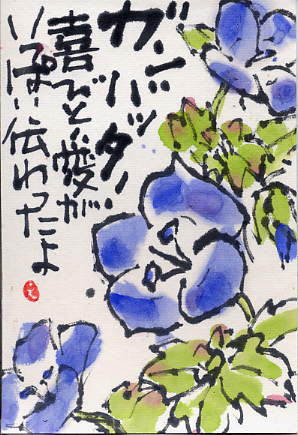 ガンバッター
喜びと愛が
いっぱい伝わったよ